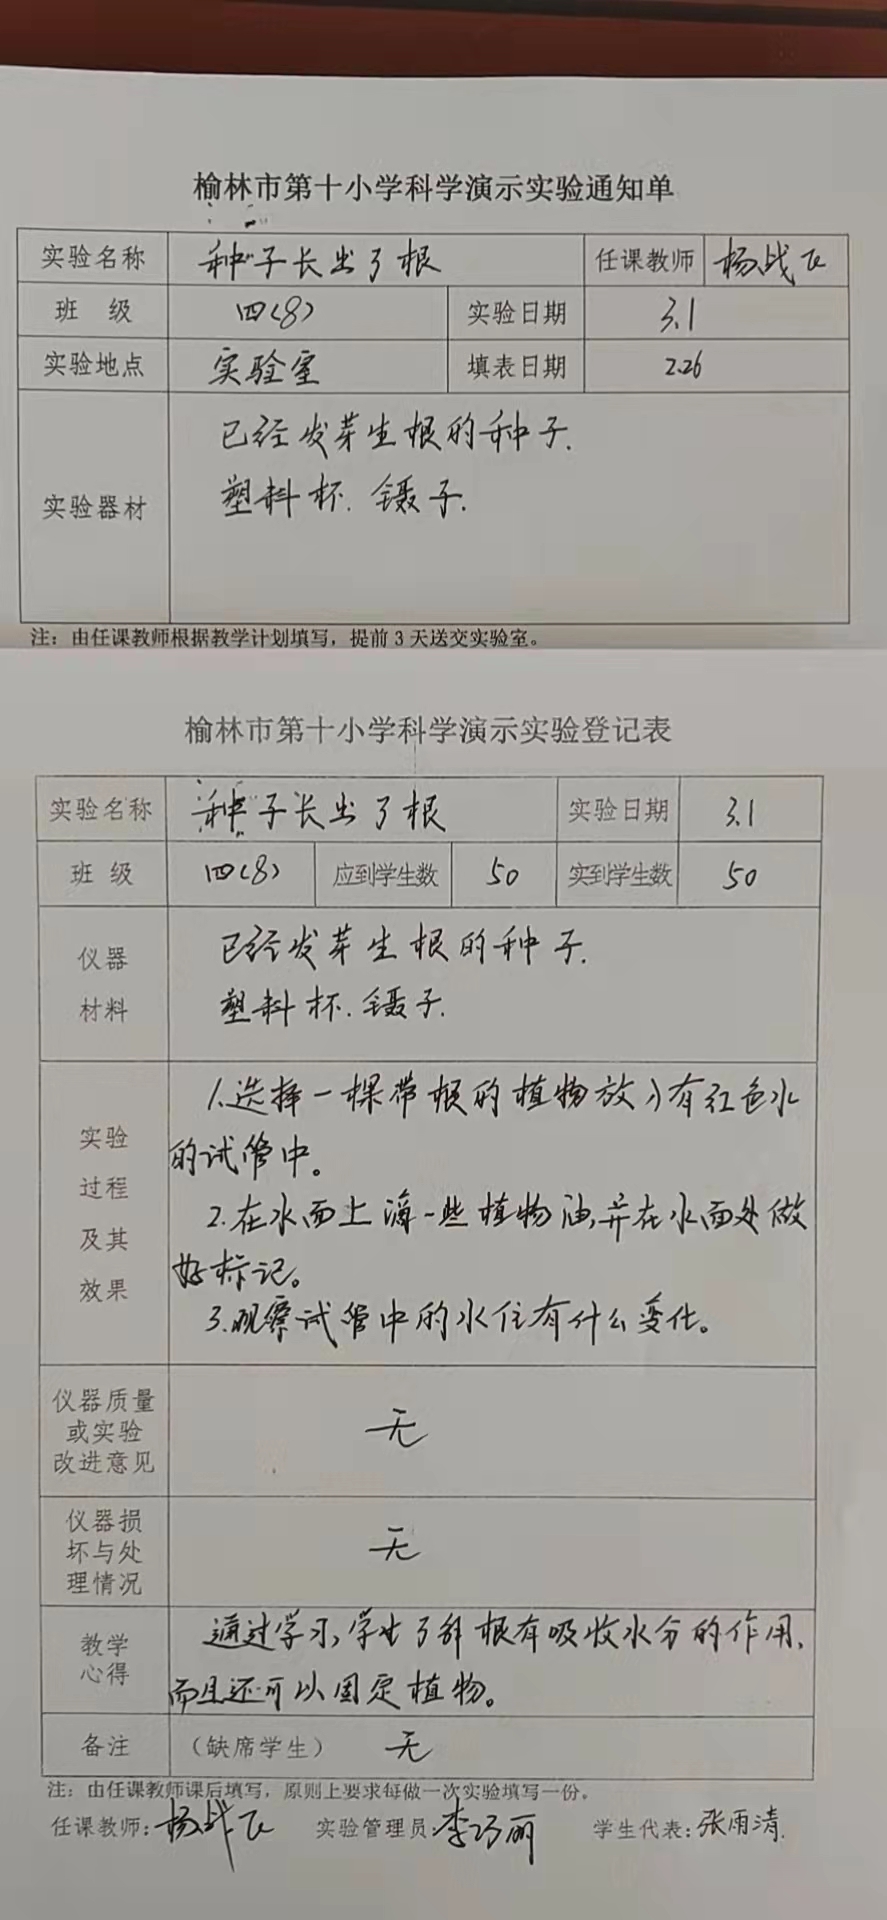 榆林市第十小学科学演示实验通知单
实验名称 种子长出了根 任课教师 杨战飞
班 级 四(8) 实验日期 3.1
实验地点 实验室 填表日期 2.26
实验器材
已经发芽生根的种子.
塑料杯. 镊子.
注：由任课教师根据教学计划填写，提前3天送交实验室。
榆林市第十小学科学演示实验登记表
实验名称 种子长出了根 实验日期 3.1
班 级 四(8) 应到学生数 50 实到学生数 50
仪器
材料
已经发芽生根的种子.
塑料杯. 镊子.
实验
过程
及其
效果
1.选择一棵带根的植物放入有红色水
的试管中。
2.在水面上滴一些植物油,并在水面处做
好标记。
3.观察试管中的水位有什么变化。
仪器质量
或实验
改进意见
无
仪器损
坏与处
理情况
无
教学
心得
通过学习,学生了解根有吸收水分的作用,
而且还可以固定植物。
备注 （缺席学生） 无
注：由任课教师课后填写，原则上要求每做一次实验填写一份。
任课教师：杨战飞 实验管理员：李巧丽 学生代表：张雨清.